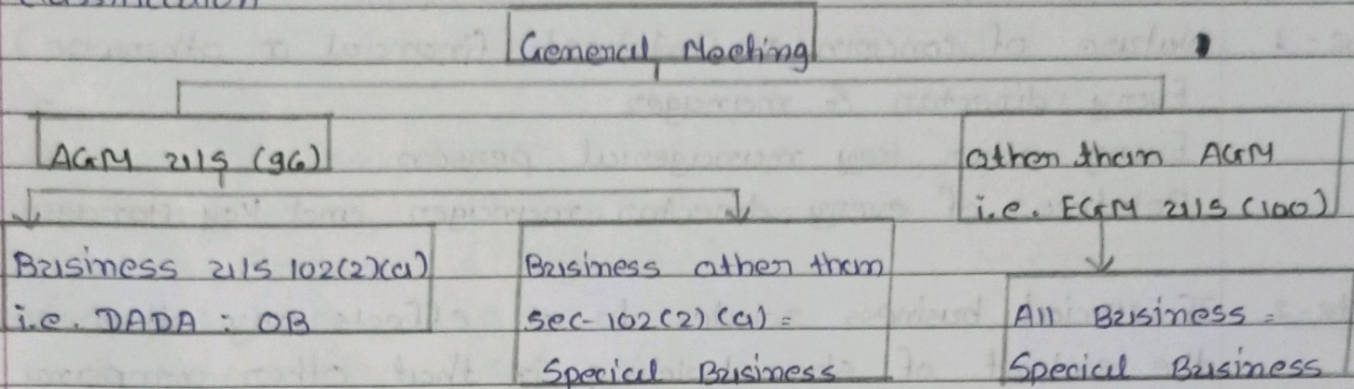 General Meeting
AGM u/s (96)
other than AGM
i.e. EGM u/s (100)
Business u/s 102(2)(a)
i.e. DADA = OB
Business other than
sec-102(2)(a) =
Special Business
All Business =
Special Business